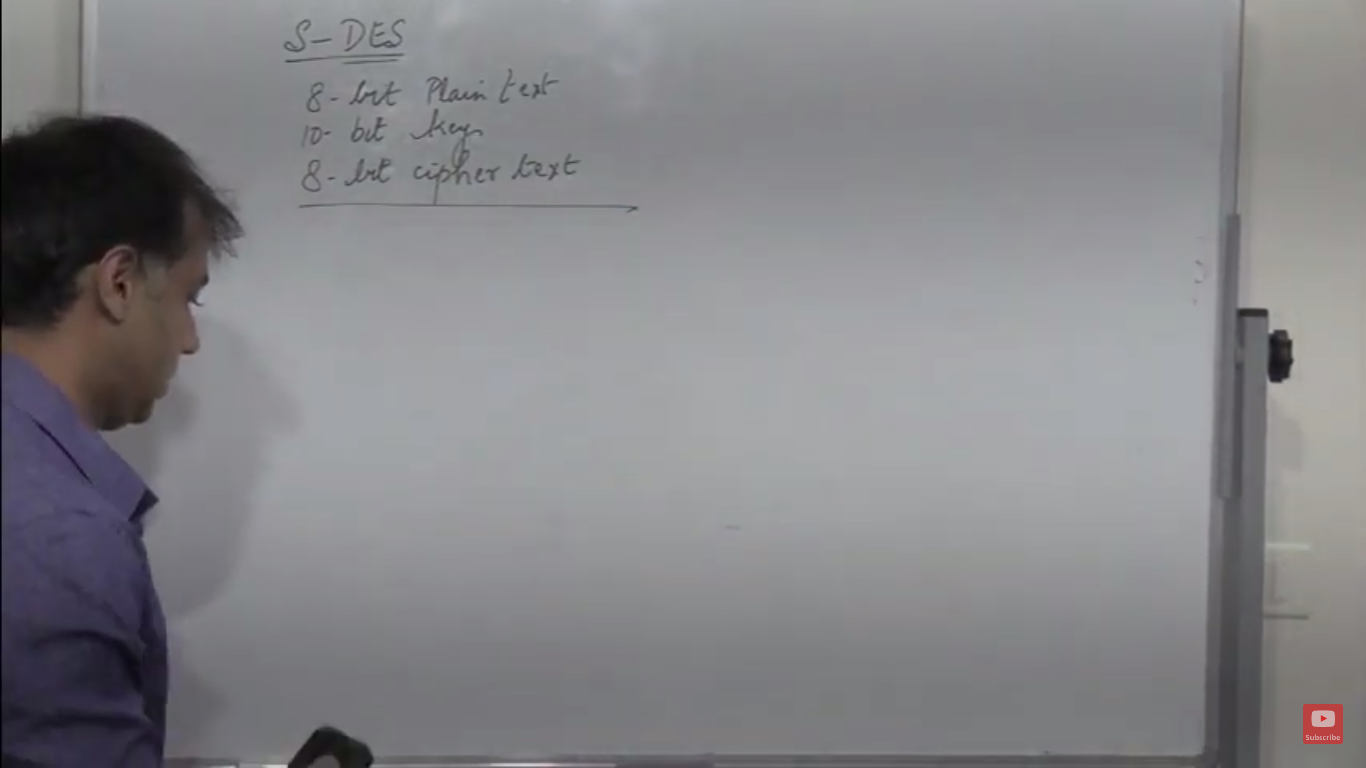 S-DES
8-bit Plain text
10-bit key
8-bit cipher text
Subscribe